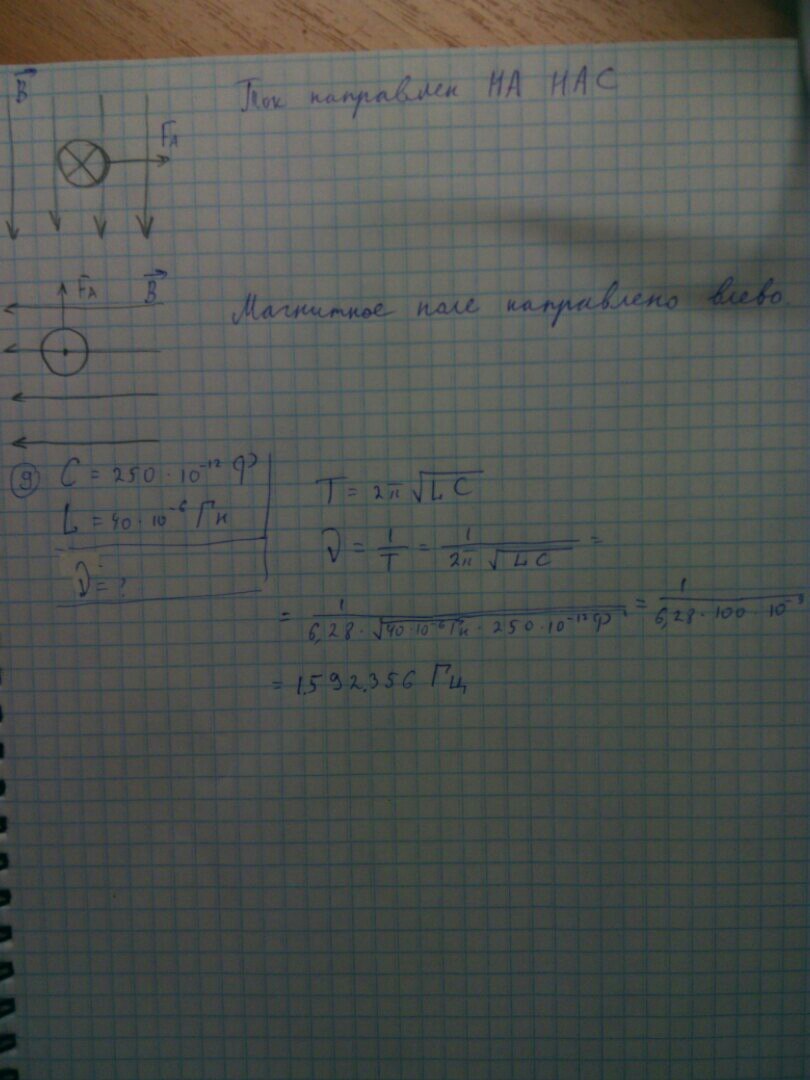 B
Ток направлен НА НАС
Fл
Fл
B
Магнитное поле направлено влево.
9
C = 250 · 10⁻¹² Ф
L = 40 · 10⁻⁶ Гн
ν = ?
T = 2π √LC
ν = 1/T = 1/(2π √LC) =
= 1/(6,28 · √40·10⁻⁶ Гн · 250·10⁻¹² Ф) = 1/(6,28 · 100 · 10⁻⁹
= 1,592,356 Гц